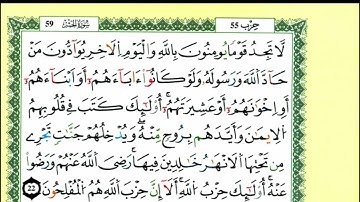 حِزْب 55
سُورَةُ الْحَشْرِ 59
لَّا تَجِدُ قَوْمًا يُومِنُونَ بِاللَّهِ وَالْيَوْمِ اِ۬لَاخِرِ يُوَآدُّونَ مَنْ
حَآدَّ اَ۬للَّهَ وَرَسُولَهُۥ وَلَوْ كَانُوٓاْ ءَابَآءَهُمُۥٓ أَوَ اَبْنَآءَهُمُۥٓ
أَوِ اِخْوَٰنَهُمُۥٓ أَوْ عَشِيرَتَهُمُۥٓ أُوْلَٰٓئِكَ كَتَبَ فِے قُلُوبِهِمُ
اُ۬لِايمَٰنَ وَأَيَّدَهُم بِرُوحٍ مِّنْهُ وَيُدْخِلُهُمْ جَنَّٰتٍ تَجْرِے
مِن تَحْتِهَا اَ۬لَانْهَٰرُ خَٰلِدِينَ فِيهَا رَضِيَ اَ۬للَّهُ عَنْهُمْ وَرَضُواْ
عَنْهُ أُوْلَٰٓئِكَ حِزْبُ اُ۬للَّهِ أَلَآ إِنَّ حِزْبَ اَ۬للَّهِ هُمُ اُ۬لْمُفْلِحُونَ 22